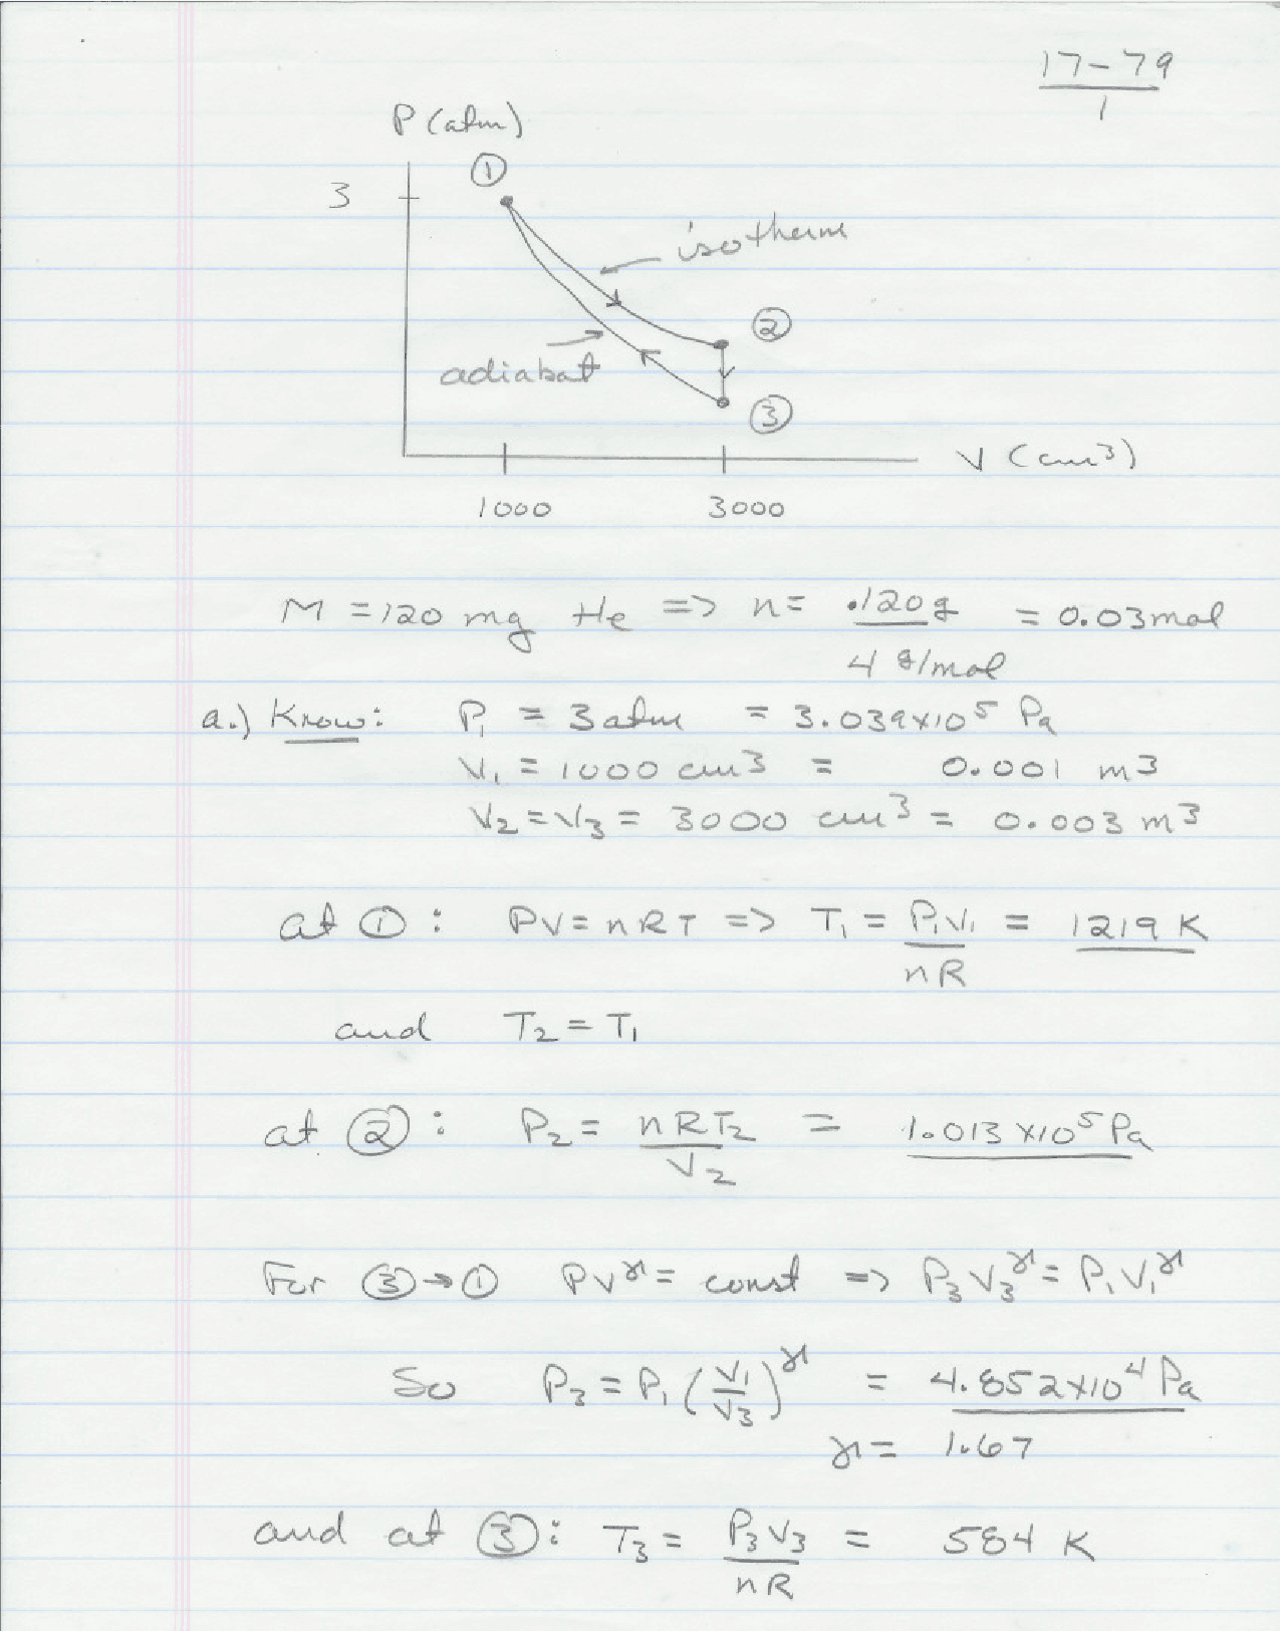 17-79
1
P (atm)
①
3
isotherm
②
adiabat
③
V (cm³)
1000 3000
M = 120 mg He => n = .120g / 4 g/mol = 0.03mol
a.) Know: P₁ = 3 atm = 3.039×10⁵ Pa
V₁ = 1000 cm³ = 0.001 m³
V₂ = V₃ = 3000 cm³ = 0.003 m³
at ①: PV = nRT => T₁ = P₁V₁ / nR = 1219 K
and T₂ = T₁
at ②: P₂ = nRT₂ / V₂ = 1.013×10⁵ Pa
For ③→① PV^γ = const => P₃V₃^γ = P₁V₁^γ
So P₃ = P₁ (V₁/V₃)^γ = 4.852×10⁴ Pa
γ = 1.67
and at ③: T₃ = P₃V₃ / nR = 584 K